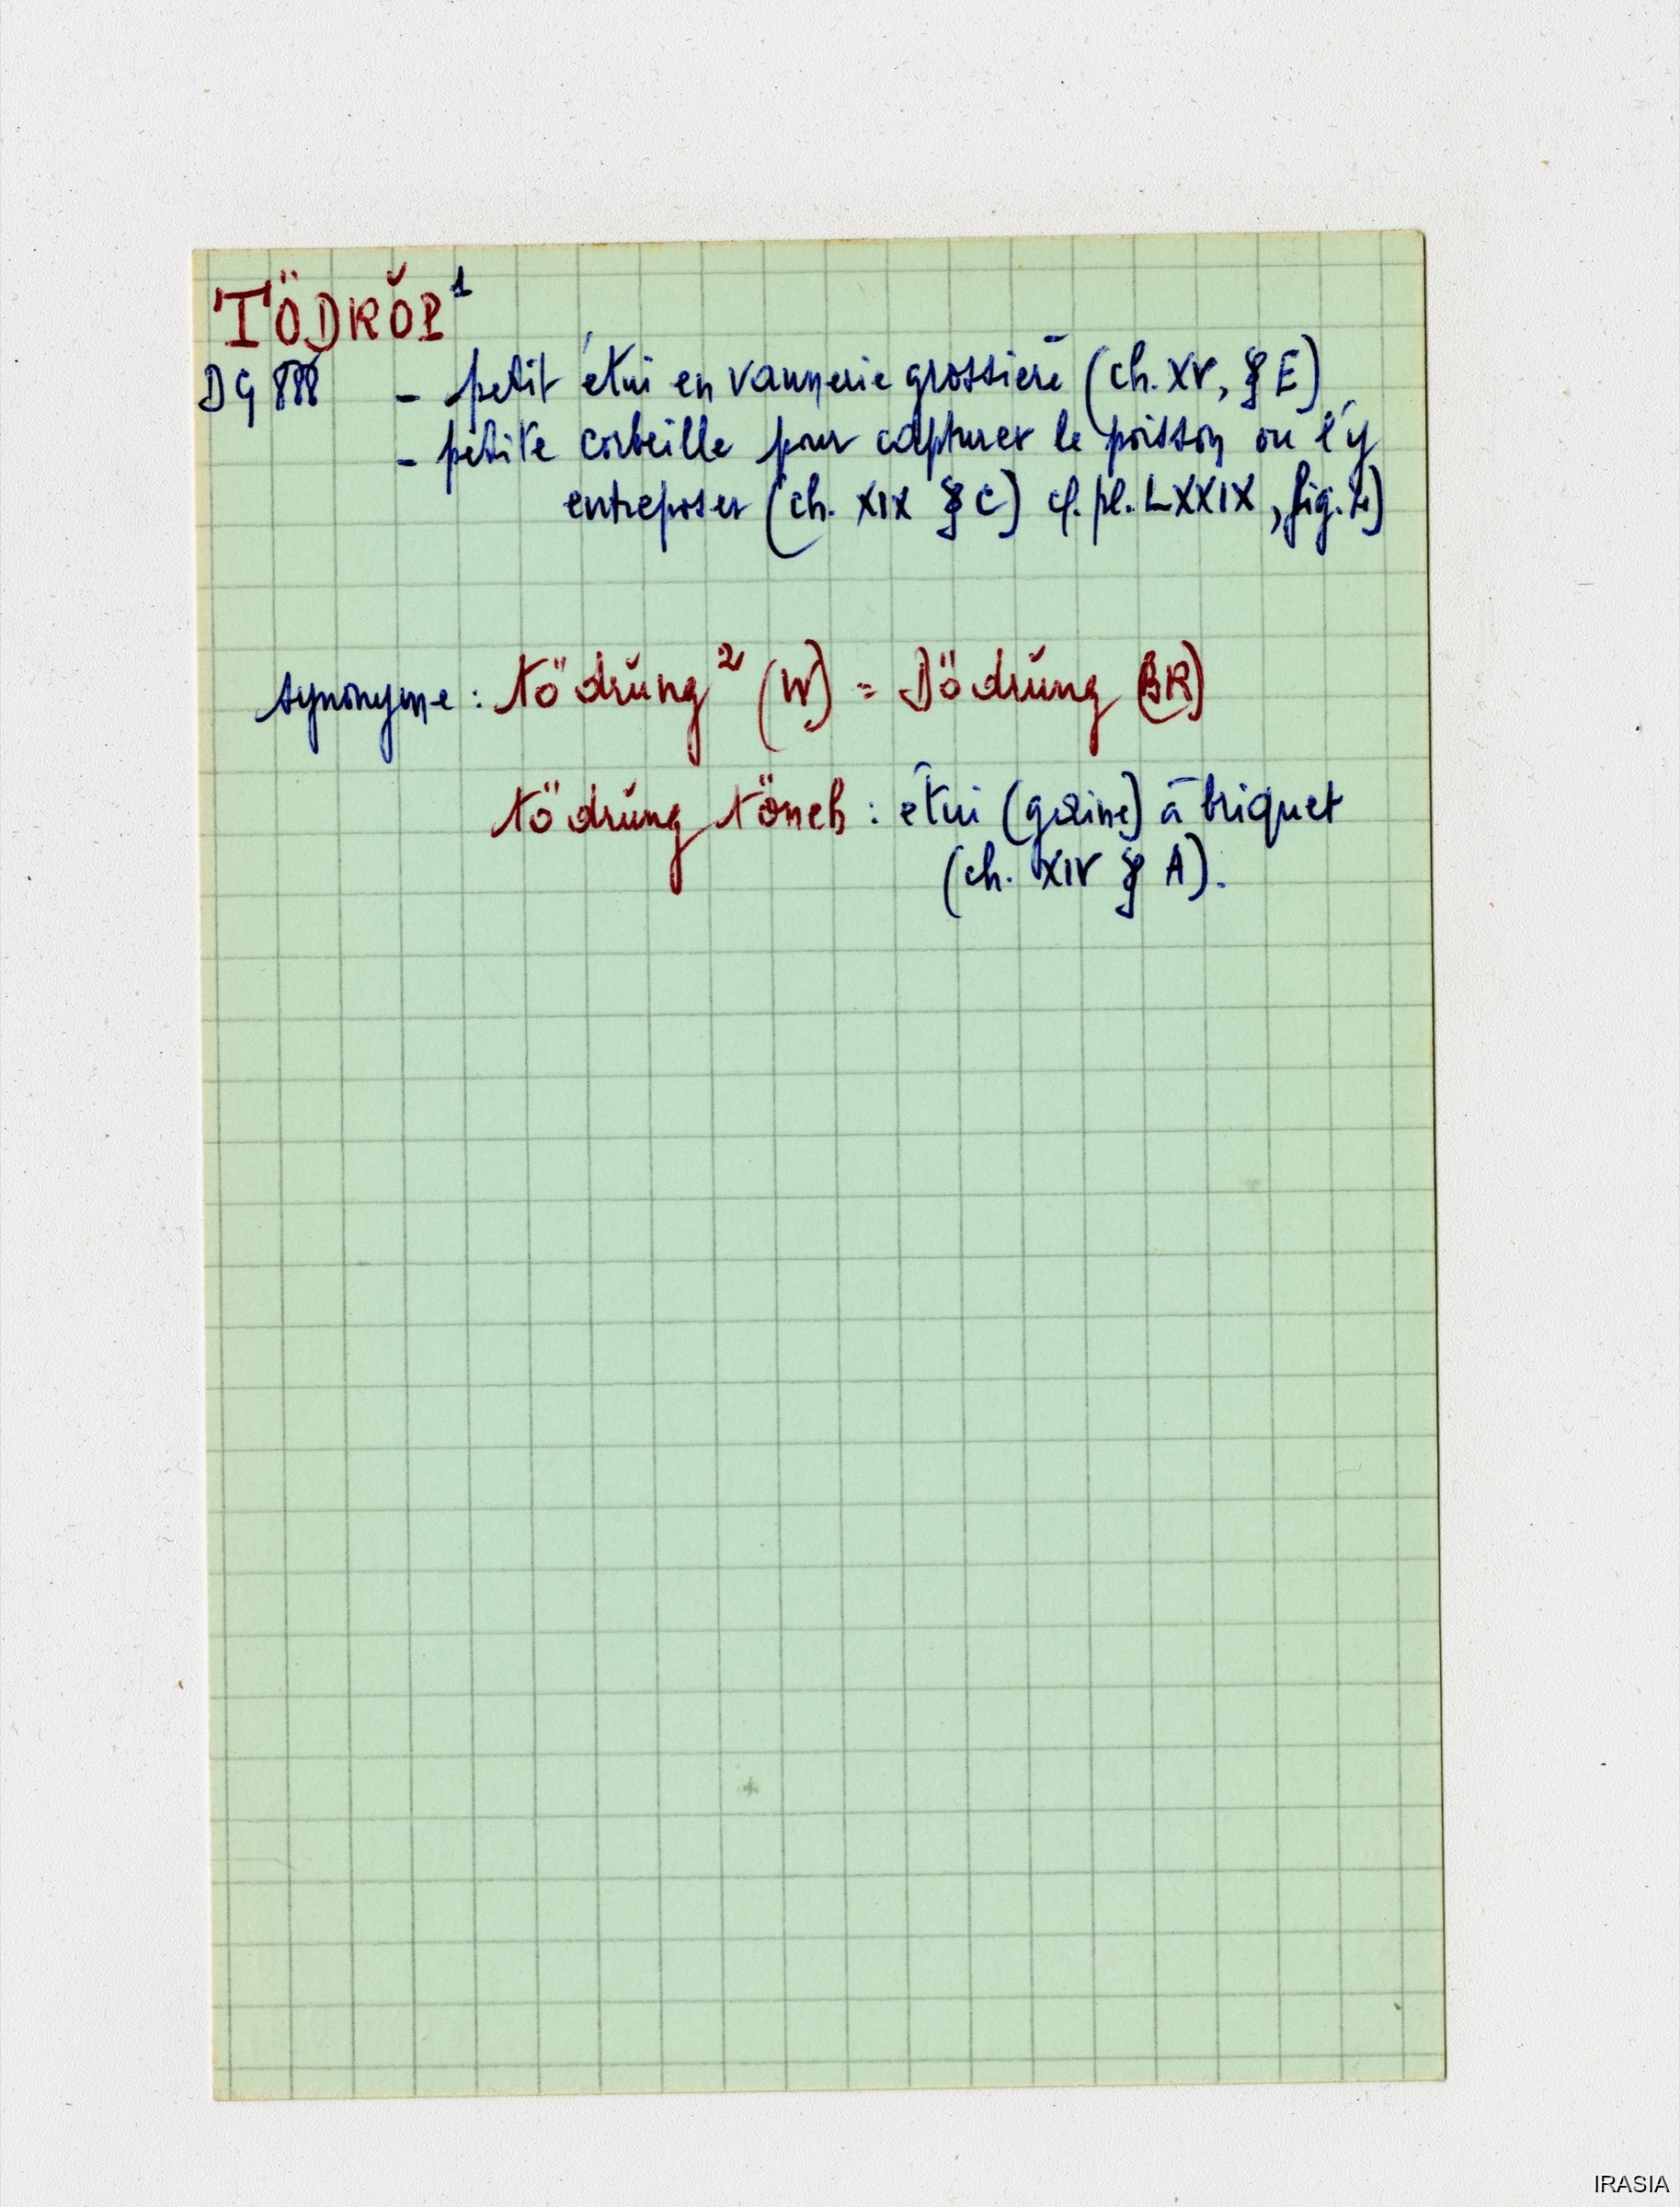 TÖDRŎP¹
DG 888 - petit étui en vannerie grossière (ch. XV, § E)
- petite corbeille pour capturer le poisson ou l'y
entreposer (ch. XIX § C) cf. pl. LXXIX, fig. 4)
synonyme : tödrŭng² (W) = Dödrŭng (BR)
tödrŭng töneh : étui (gaine) à briquet
(ch. XIV § A).
IRASIA